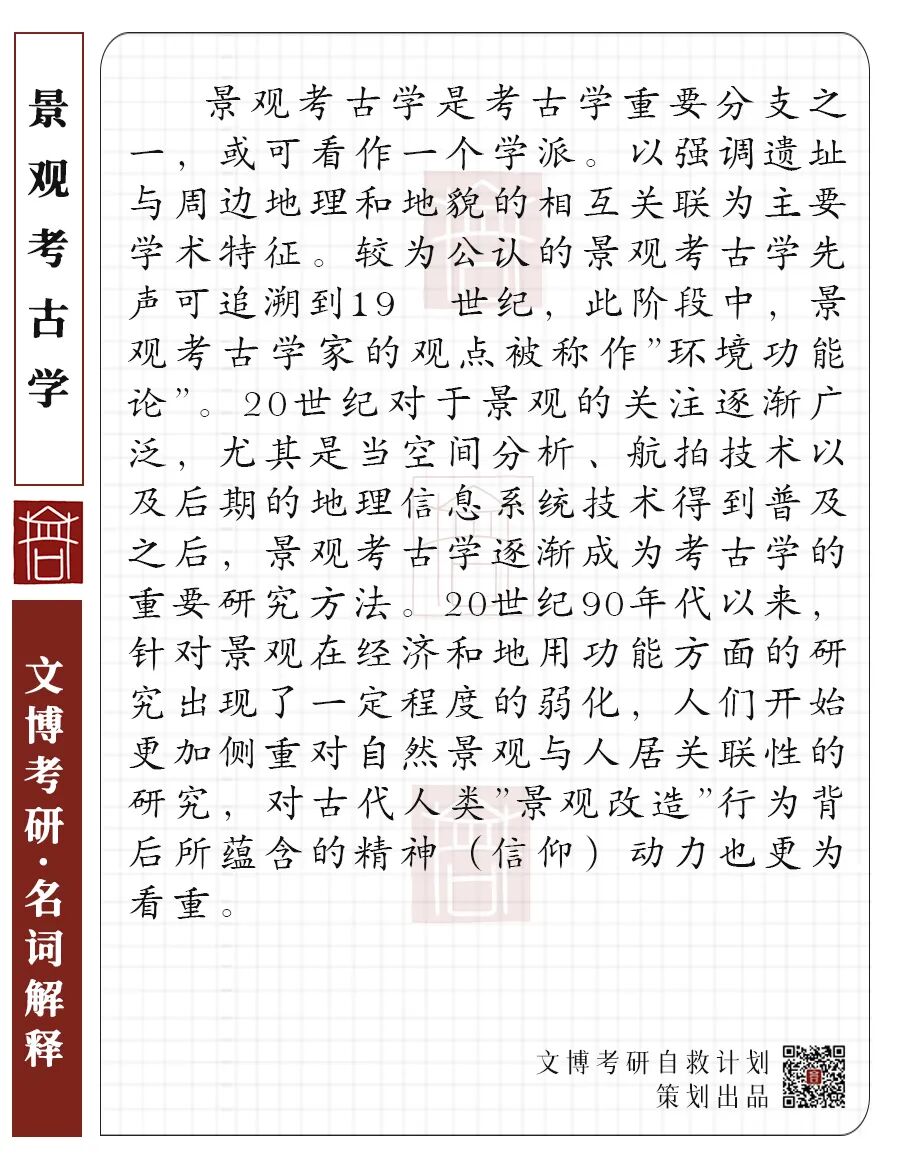 景观考古学
文博考研·名词解释
景观考古学是考古学重要分支之
一，或可看作一个学派。以强调遗址
与周边地理和地貌的相互关联为主要
学术特征。较为公认的景观考古学先
声可追溯到19 世纪，此阶段中，景
观考古学家的观点被称作”环境功能
论”。20世纪对于景观的关注逐渐广
泛，尤其是当空间分析、航拍技术以
及后期的地理信息系统技术得到普及
之后，景观考古学逐渐成为考古学的
重要研究方法。20世纪90年代以来，
针对景观在经济和地用功能方面的研
究出现了一定程度的弱化，人们开始
更加侧重对自然景观与人居关联性的
研究，对古代人类”景观改造”行为背
后所蕴含的精神（信仰）动力也更为
看重。
文博考研自救计划
策划出品